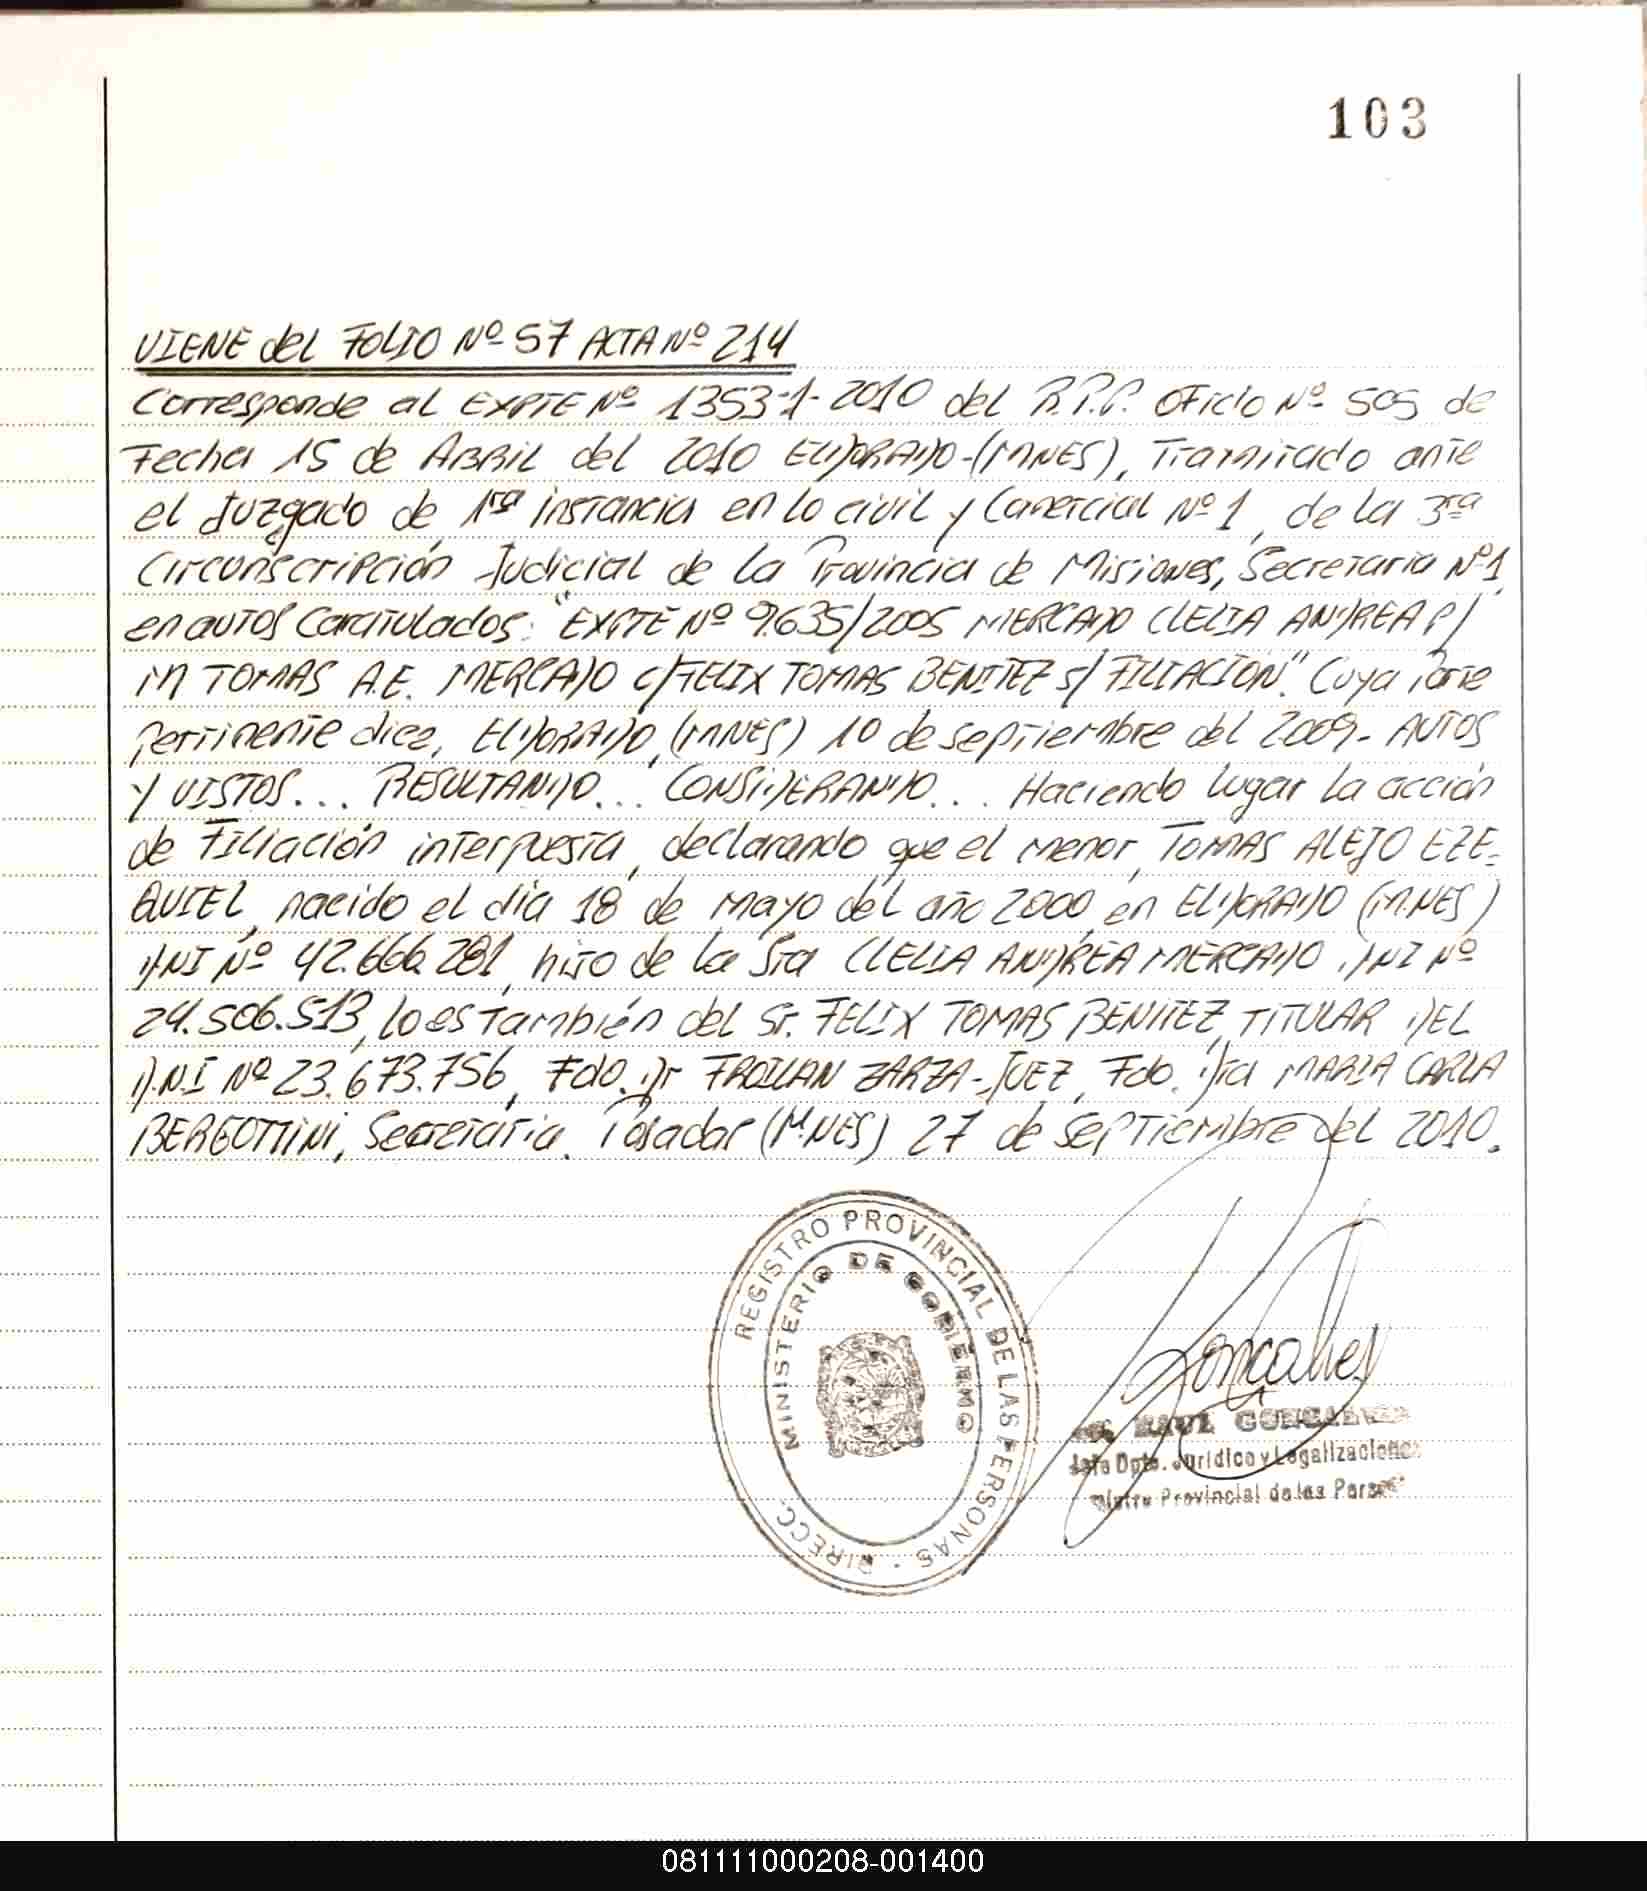 103
VIENE del FOLIO Nº 57 ACTA Nº 214
Corresponde al EXPTE Nº 1353-1-2010 del R.P.P. OFicio Nº 505 de
Fecha 15 de ABRIL del 2010 ELDORADO-(MNES), Tramitado ante
el Juzgado de 1ra instancia en lo civil y Comercial Nº 1, de la 3ra
Circunscripción Judicial de la Provincia de Misiones, Secretaria Nº1,
en autos Caratulados: "EXPTE Nº 9635/2005 MERCADO CLELIA ANDREA P/
M TOMAS A.E. MERCADO C/FELIX TOMAS BENITEZ S/ FILIACION". Cuya Parte
Pertinente dice, ELDORADO, (MNES) 10 de septiembre del 2009.- AUTOS
Y VISTOS... RESULTANDO... CONSIDERANDO... Haciendo lugar la acción
de Filiación interpuesta, declarando que el menor, TOMAS ALEJO EZE-
QUIEL, nacido el día 18 de Mayo del año 2000, en ELDORADO (M.NES)
DNI Nº 42.666.281, hijo de la Sra CLELIA ANDREA MERCADO D.NI Nº
24.506.513, lo es también del Sr. FELIX TOMAS BENITEZ, TITULAR DEL
D.N.I Nº 23.673.756, Fdo. Dr FROILAN ZARZA-JUEZ, Fdo. Dra MARIA CARLA
BERGOTTINI, Secretaria. Posadas (M.NES) 27 de SEPTiembre del 2010.
REGISTRO PROVINCIAL DE LAS PERSONAS - DIRECC.
MINISTERIO DE GOBIERNO
Goncalves
RAUL GONCALVES
Jefe Dpto. Jurídico y Legalizaciones
Provincial de las Personas
081111000208-001400